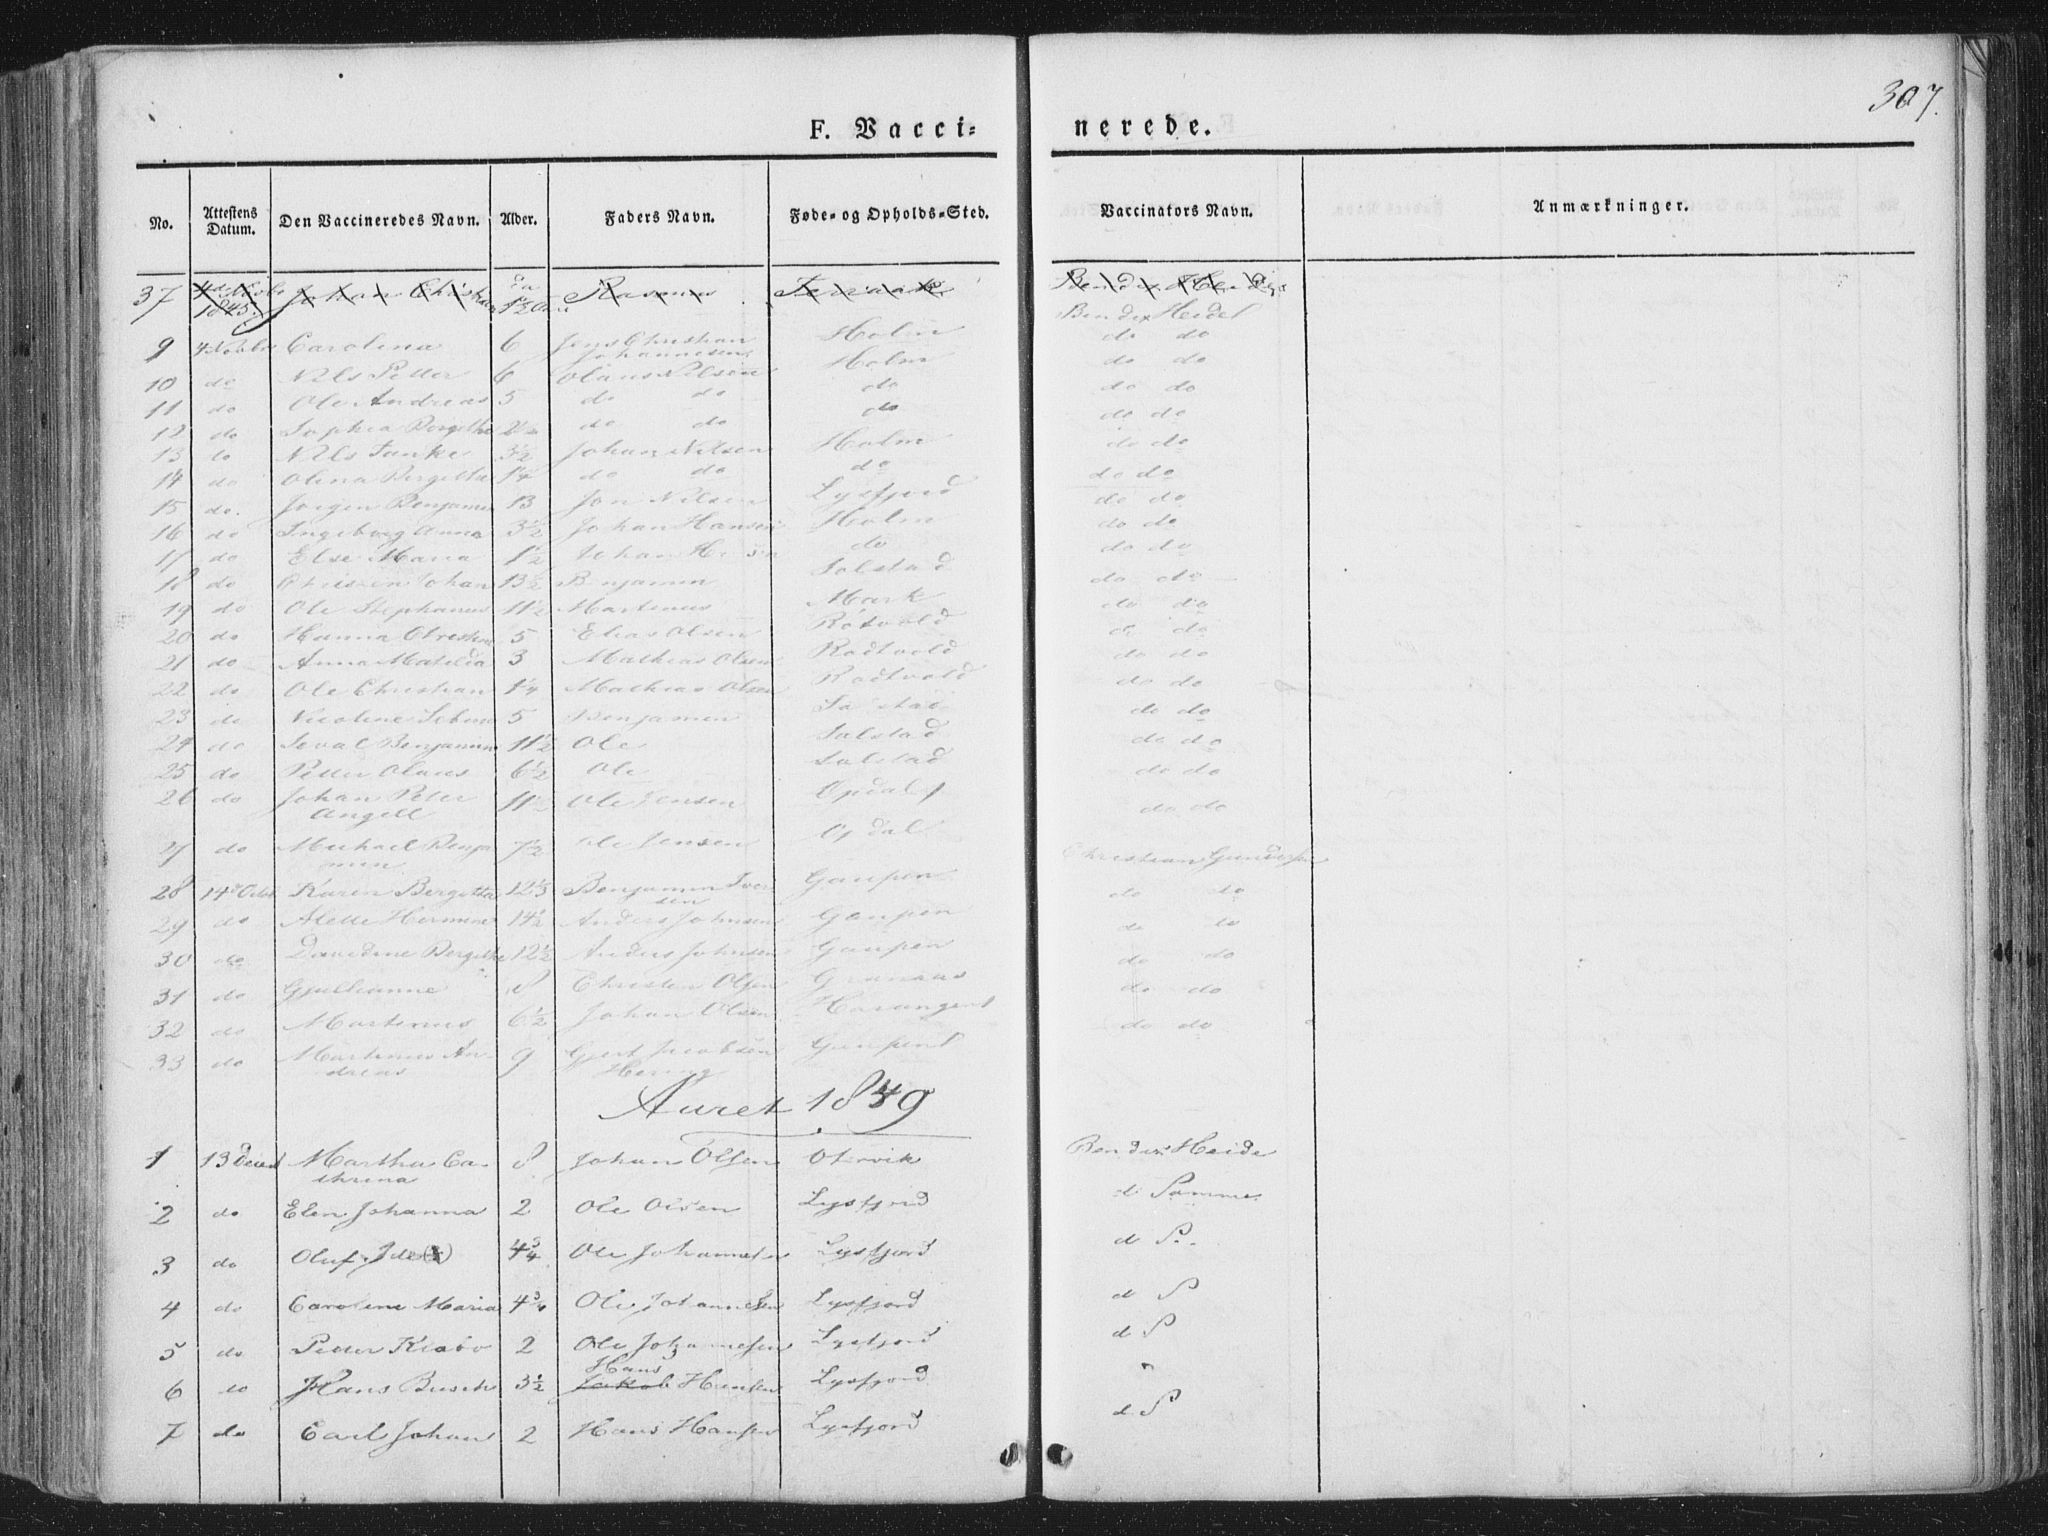 307.
F. Vacci= nerede.
No. Attestens Datum. Den Vaccineredes Navn. Alder. Faders Navn. Føde= og Opholds=Sted. Vaccinators Navn. Anmærkninger.
37 4de Novbr 1845. Johan Christian 1½ Rasmus Bendix Heide
9 4 Novbr Carolina 6 Jens Christian Johannesen Holm Bendix Heide
10 do Nils Petter 6 Olaus Nilsen Holm do do
11 do Ole Andreas 5 do do do do do
12 do Sophia Bergithe do do do do do
13 do Nils Tanke 3½ Johan Nilsen Holm do do
14 do Olina Bergitta 1¼ do do do do do
15 do. Jørgen Benjamin 13 Jon Nilsen Lysfjord do do
16 do Ingeborg Anna 3½ Johan Hansen Holm do do
17 do Else Maria 1½ Johan do do do
18 do Johan 13½ Benjamin Salstad do do
19 do Ole Stephanus 11½ Martinus Mark do do
20 do Hanna 5 Elias Olsen Røtvold do do
21 do Anna Matilda 3 Mathias Olsen Rødtvold do do
22 do Ole Christian 1¼ Mathias Olsen Rødtvold do do
23 do Nicoline 5 Benjamin do do
24 do Benjamin 11½ Ole Salstad do do
25 do Petter Olaus 6½ Ole Salstad do do
26 do Johan Peter Angell 11½ Ole Jensen Opdal do do
27 do Michael Benjamin 7½ Ole Jensen Opdal do do
28 14de Octbr Karen Bergitha 12⅓ Benjamin Iversen Gaupen Christian Gundersen
29 do Mette Hermine 14½ Anders Johnsen Gaupen do do
30 do Davidine Bergithe 12½ Anders Johnsen Gaupen do do
31 do Gjullianne 8 Christen Olsen Granaas do do
32 do Martinus 6½ Johan Olsen do do
33 do Martinus Andreas 9 Gjert Jacobsen Hering do do
Aaret 1849
1 13 Decb Martha Cathrina 8 Johan Olsen Otervik Bendix Heide
2 do Elen Johanna 2 Ole Olsen Lysfjord d Samme
3 do Oluf 4¾ Ole Johannesen Lysfjord d S.
4 do Caroline Maria 4¾ Ole Johannesen Lysfjord d S
5 do Petter Kiabo 2 Ole Johannesen Lysfjord d S
6 do Hans Busch 3½ Hans Jakob Hansen Lysfjord "
7 do Carl Johan 2 Hans Hansen Lysfjord d. S